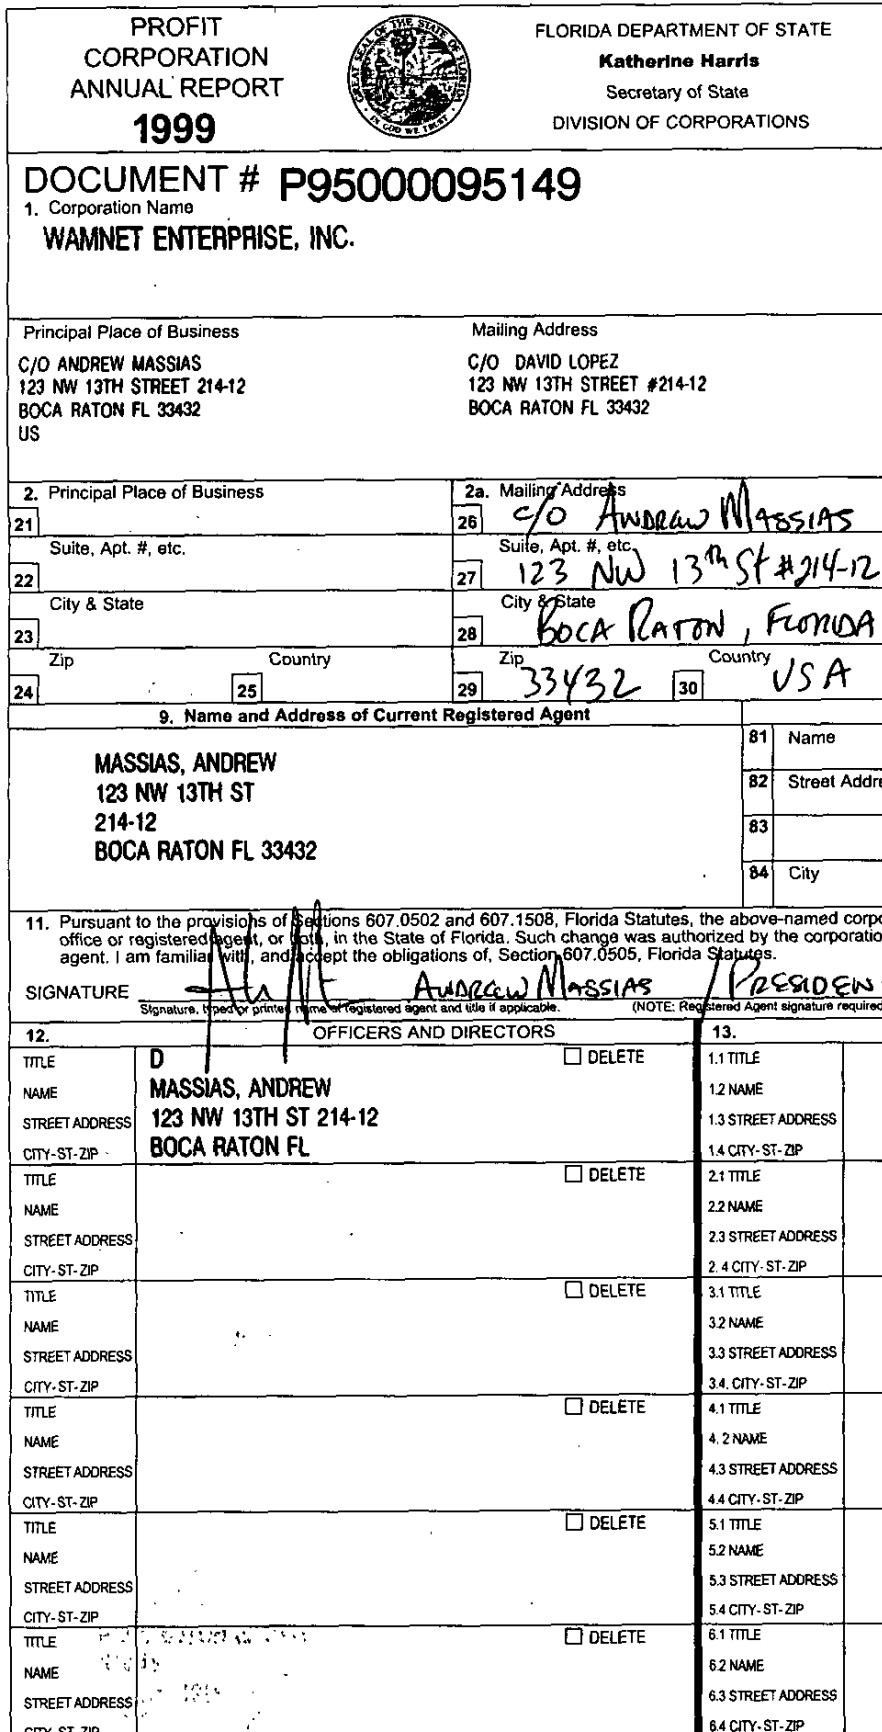 PROFIT
CORPORATION
ANNUAL REPORT
1999
GREAT SEAL OF THE STATE OF FLORIDA
IN GOD WE TRUST
FLORIDA DEPARTMENT OF STATE
Katherine Harris
Secretary of State
DIVISION OF CORPORATIONS
DOCUMENT # P95000095149
1. Corporation Name
WAMNET ENTERPRISE, INC.
Principal Place of Business
C/O ANDREW MASSIAS
123 NW 13TH STREET 214-12
BOCA RATON FL 33432
US
Mailing Address
C/O DAVID LOPEZ
123 NW 13TH STREET #214-12
BOCA RATON FL 33432
2. Principal Place of Business
21
Suite, Apt. #, etc.
22
City & State
23
Zip
24
Country
25
2a. Mailing Address
26 c/o ANDREW MASSIAS
Suite, Apt. #, etc.
27 123 NW 13th St #214-12
City & State
28 BOCA RATON, FLORIDA
Zip
29 33432
Country
30 USA
9. Name and Address of Current Registered Agent
MASSIAS, ANDREW
123 NW 13TH ST
214-12
BOCA RATON FL 33432
81 Name
82 Street Addre
83
84 City
11. Pursuant to the provisions of Sections 607.0502 and 607.1508, Florida Statutes, the above-named corpo
office or registered agent, or both, in the State of Florida. Such change was authorized by the corporatio
agent. I am familiar with, and accept the obligations of, Section 607.0505, Florida Statutes.
SIGNATURE ANDREW MASSIAS / PRESIDEN
Signature, typed or printed name of registered agent and title if applicable. (NOTE: Registered Agent signature required
12. OFFICERS AND DIRECTORS 13.
TITLE D DELETE 1.1 TITLE
NAME MASSIAS, ANDREW 1.2 NAME
STREET ADDRESS 123 NW 13TH ST 214-12 1.3 STREET ADDRESS
CITY-ST-ZIP BOCA RATON FL 1.4 CITY-ST-ZIP
TITLE DELETE 2.1 TITLE
NAME 2.2 NAME
STREET ADDRESS 2.3 STREET ADDRESS
CITY-ST-ZIP 2.4 CITY-ST-ZIP
TITLE DELETE 3.1 TITLE
NAME 3.2 NAME
STREET ADDRESS 3.3 STREET ADDRESS
CITY-ST-ZIP 3.4. CITY-ST-ZIP
TITLE DELETE 4.1 TITLE
NAME 4.2 NAME
STREET ADDRESS 4.3 STREET ADDRESS
CITY-ST-ZIP 4.4 CITY-ST-ZIP
TITLE DELETE 5.1 TITLE
NAME 5.2 NAME
STREET ADDRESS 5.3 STREET ADDRESS
CITY-ST-ZIP 5.4 CITY-ST-ZIP
TITLE DELETE 6.1 TITLE
NAME 6.2 NAME
STREET ADDRESS 6.3 STREET ADDRESS
CITY-ST-ZIP 6.4 CITY-ST-ZIP